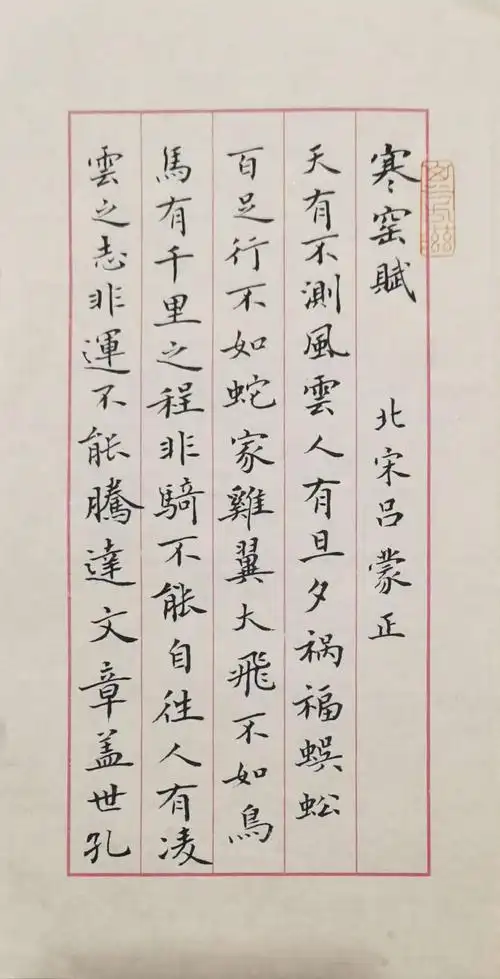 寒窑賦 北宋吕蒙正
天有不測風雲人有旦夕祸福蜈蚣
百足行不如蛇家雞翼大飛不如鳥
馬有千里之程非騎不能自往人有凌
雲之志非運不能騰達文章盖世孔